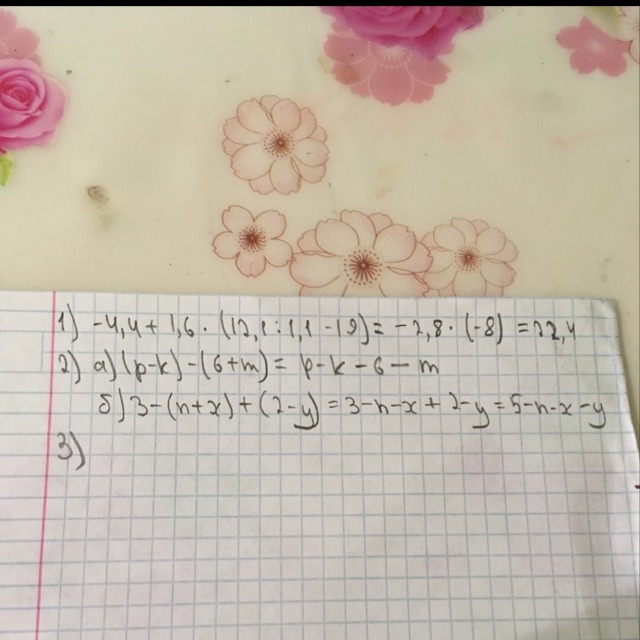 1) -4,4 + 1,6 · (12,1 : 1,1 - 19) = -2,8 · (-8) = 22,4
2) а) (p-k) - (6+m) = p-k-6-m
б) 3-(n+x)+(2-y) = 3-n-x+2-y = 5-n-x-y
3)